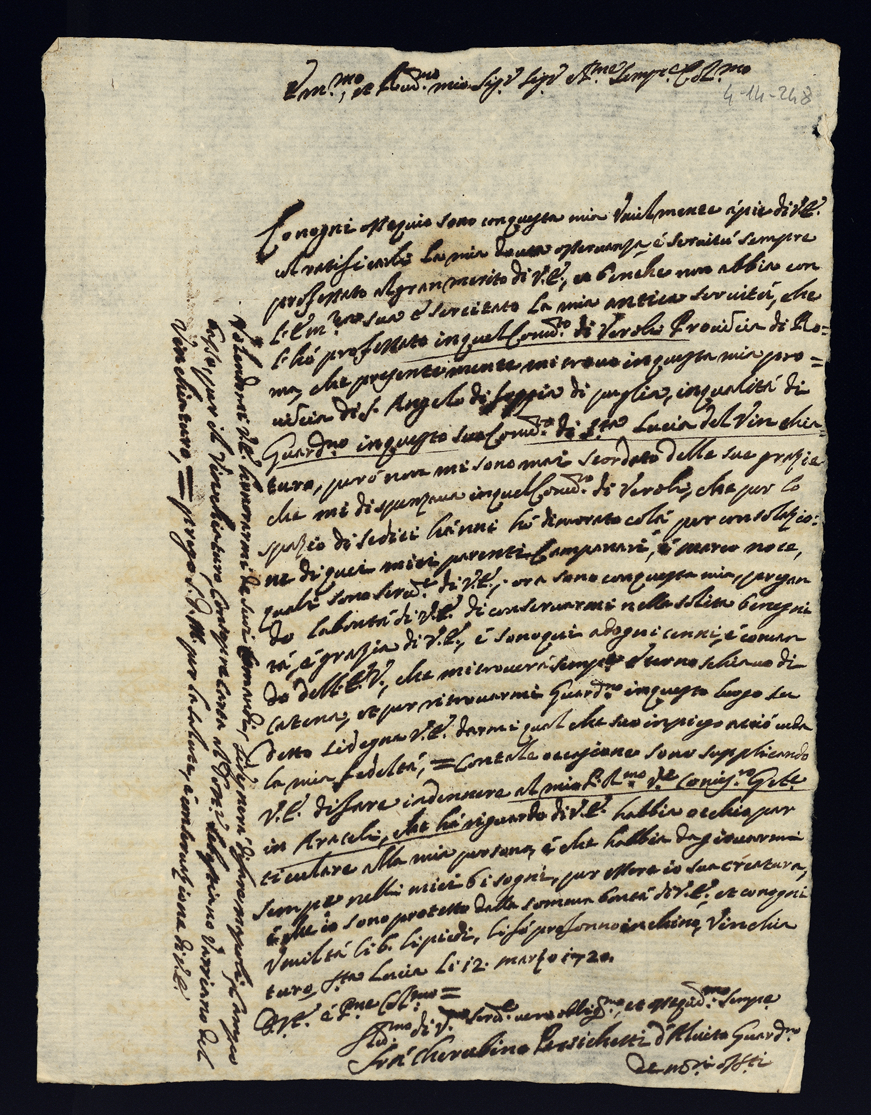 Em.mo, et Rev.mo mio Sig.r Sig.r P.rne sempre Col.mo
4-14-248
Con ogni ossequio sono con questa mia Umilmente à pie di V.E.
à ratificarli la mia dovuta osservanza, é servitú sempre
professata al gran merito di V.E., et benche non abbia con
l'Em.za sua esercitato la mia antica servitú, che
l'hó professato in quel Conv.to di Veroli Provincia di Ro=
ma, che presentemente mi trovo in questa mia pro=
vincia di S. Angelo di foggia di puglia, in qualitá di
Guard.no in questo suo Conv.to di S.ta Lucia del Vinchia=
turo, peró non mi sono mai scordato delle sue grazie
che mi dispenzava in quel Conv.to di Veroli, che per lo
spazio di sedici hanni hó dimorato colá per consolazio=
ne di quei miei parenti Campanari, é marco noce,
quali sono serv.i di V.E., ora sono con questa mia, pregan
do la bontá di V.E. di conservarmi nella solita benigni
tá, é grazia di V.E., é sono qui ad ogni cenni, é coman
do dell'E.V., che mi troverá sempre eterno schiavo di
catena, et per ritrovarmi Guard.no in questo luogo su
detto si degna V.E. darmi qual che suo impiego acció veda
la mia fedeltá, = Con tale occasione sono supplicando
V.E. di fare indennere al mio P. R.mo
in Araceli, che há riguardo di V.E. habbia occhio par
ticulare alla mia persona, é che habbia da giovarmi
sempre nelli miei bisogni, per essere io sua creatura,
é che io sono protetto dalla somma bontá di V.E., et con ogni
Umiltá li b. li piedi, li fó profonno inchino, Vinchia
turo S.ta Lucia li 12. marzo 1720.
D.V.E. é P.rne Col.mo =
Um.mo di V.mo Serv.e vero oblig.mo, et osseq.mo sempre
Frá Cherubino Persichetti d'Alvito Guard.no
de min.ri oss.ti
Volendomi V.E. honorarmi de suoi Comandi, si degnera di fare
per il Vinchiaturo
Vinchiaturo, = prego S.D.M. per la salute, é conservazione di V.E.